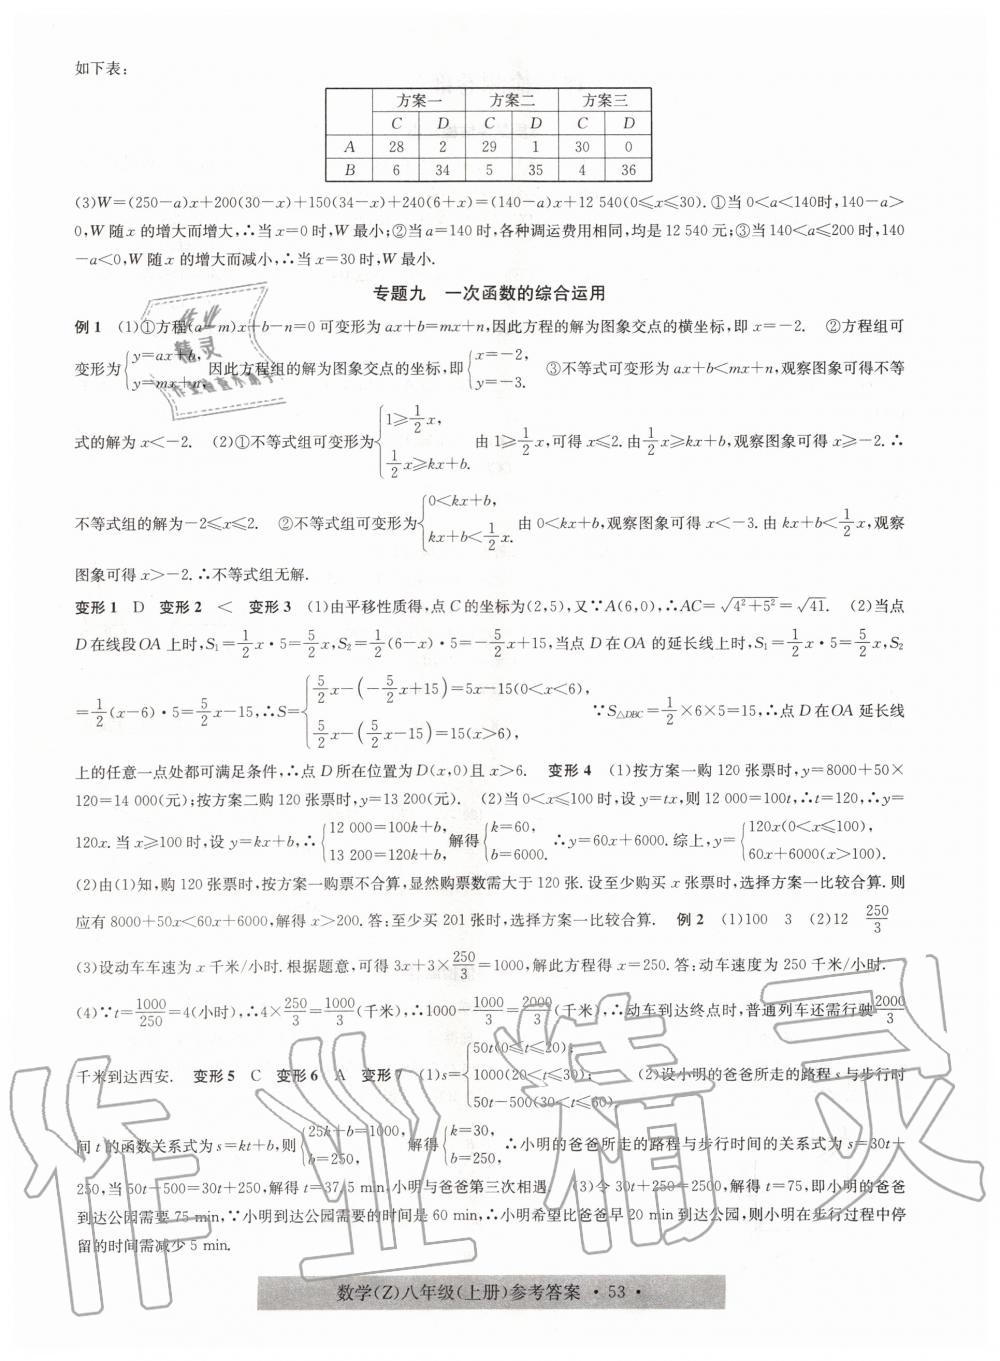 如下表:
方案一 方案二 方案三
C D C D C D
A 28 2 29 1 30 0
B 6 34 5 35 4 36
(3)W=(250-a)x+200(30-x)+150(34-x)+240(6+x)=(140-a)x+12 540(0≤x≤30).①当0<a<140时,140-a>
0,W随x的增大而增大,∴当x=0时,W最小;②当a=140时,各种调运费用相同,均是12 540元;③当140<a≤200时,140
-a<0,W随x的增大而减小,∴当x=30时,W最小.
专题九 一次函数的综合运用
例1 (1)①方程(a-m)x+b-n=0可变形为ax+b=mx+n,因此方程的解为图象交点的横坐标,即x=-2. ②方程组可
变形为{y=ax+b, y=mx+n, 因此方程组的解为图象交点的坐标,即{x=-2, y=-3. ③不等式可变形为ax+b<mx+n,观察图象可得不等
式的解为x<-2. (2)①不等式组可变形为{1≥1/2x, 1/2x≥kx+b. 由1≥1/2x,可得x≤2.由1/2x≥kx+b,观察图象可得x≥-2.∴
不等式组的解为-2≤x≤2. ②不等式组可变形为{0<kx+b, kx+b<1/2x. 由0<kx+b,观察图象可得x<-3.由kx+b<1/2x,观察
图象可得x>-2.∴不等式组无解.
变形1 D 变形2 < 变形3 (1)由平移性质得,点C的坐标为(2,5),又∵A(6,0),∴AC=√(4²+5²)=√41. (2)当点
D在线段OA上时,S₁=1/2x·5=5/2x,S₂=1/2(6-x)·5=-5/2x+15,当点D在OA的延长线上时,S₁=1/2x·5=5/2x,S₂
=1/2(x-6)·5=5/2x-15,∴S={5/2x-(-5/2x+15)=5x-15(0<x<6), 5/2x-(5/2x-15)=15(x>6), ∵S△DBC=1/2×6×5=15,∴点D在OA延长线
上的任意一点处都可满足条件,∴点D所在位置为D(x,0)且x>6. 变形4 (1)按方案一购120张票时,y=8000+50×
120=14 000(元);按方案二购120张票时,y=13 200(元). (2)当0<x≤100时,设y=tx,则12 000=100t,∴t=120,∴y=
120x.当x≥100时,设y=kx+b,∴{12 000=100k+b, 13 200=120k+b, 解得{k=60, b=6000. ∴y=60x+6000.综上,y={120x(0<x≤100), 60x+6000(x>100).
(2)由(1)知,购120张票时,按方案一购票不合算,显然购票数需大于120张.设至少购买x张票时,选择方案一比较合算.则
应有8000+50x<60x+6000,解得x>200.答:至少买201张时,选择方案一比较合算. 例2 (1)100 3 (2)12 250/3
(3)设动车车速为x千米/小时.根据题意,可得3x+3×250/3=1000,解此方程得x=250.答:动车速度为250千米/小时.
(4)∵t=1000/250=4(小时),∴4×250/3=1000/3(千米),∴1000-1000/3=2000/3(千米),∴动车到达终点时,普通列车还需行驶2000/3
千米到达西安. 变形5 C 变形6 A 变形7 (1)s={50t(0≤t≤20); 1000(20<t≤30); 50t-500(30<t≤60) (2)设小明的爸爸所走的路程s与步行时
间t的函数关系式为s=kt+b,则{25k+b=1000, b=250, 解得{k=30, b=250, ∴小明的爸爸所走的路程与步行时间的关系式为s=30t+
250,当50t-500=30t+250,解得t=37.5 min,小明与爸爸第三次相遇. (3)令30t+250=2500,解得t=75,即小明的爸爸
到达公园需要75 min,∵小明到达公园需要的时间是60 min,∴小明希望比爸爸早20 min到达公园,则小明在步行过程中停
留的时间需减少5 min.
数学(Z)八年级(上册)参考答案 ·53·
作业精灵
作业
精灵
作业检查小助手